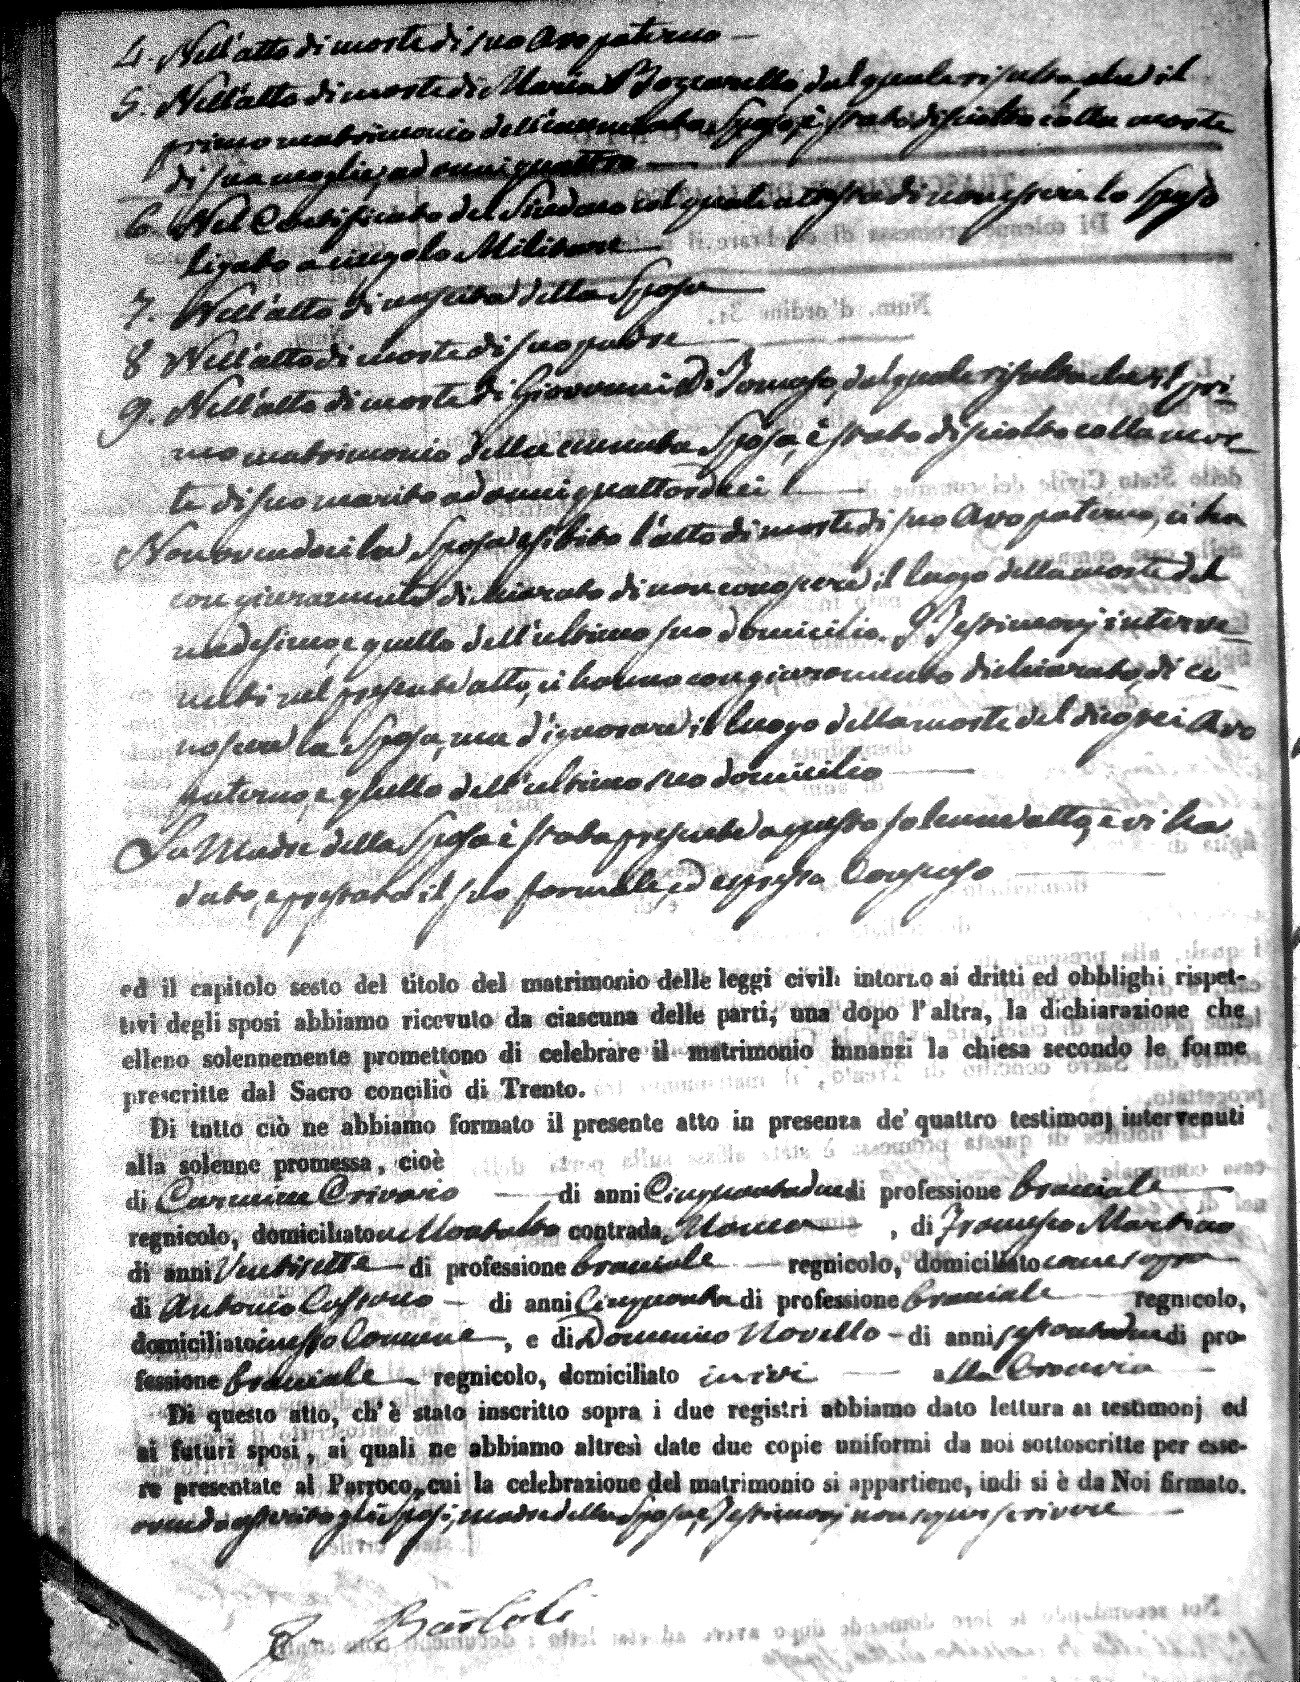 4. Nell'atto di morte di suo Avo paterno —
5. Nell'atto di morte di Maria Boccarello, dal quale risulta, che il
primo matrimonio dell'anzidetto Sposo, è stato disciolto colla morte
di sua moglie, ad anni quattro —
6. Nel Certificato del Sindaco col quale attesta di non essere lo Sposo
ligato a vingolo Militare —
7. Nell'atto di nascita della Sposa —
8 Nell'atto di morte di suo padre —
9. Nell'atto di morte di Giovanni Di Tomaso, dal quale risulta che il pri-
mo matrimonio della cennata Sposa, è stato disciolto colla mor-
te di suo marito ad anni quattordici —
Non avendoci la Sposa esibito l'atto di morte di suo Avo paterno, ci ha
con giuramento dichiarato di non conoscere il luogo della morte del
medesimo, e quello dell'ultimo suo domicilio. I Testimonj interve-
nuti nel presente atto, ci hanno con giuramento dichiarato, di co-
noscere la Sposa, ma d'ignorare il luogo della morte del di costei Avo
paterno, e quello dell'ultimo suo domicilio —
La Madre della Sposa è stata presente a questo solenne atto, e vi ha
dato, e prestato il suo formale, ed espresso Consenso —
ed il capitolo sesto del titolo del matrimonio delle leggi civili intorno ai dritti ed obblighi rispet-
tivi degli sposi abbiamo ricevuto da ciascuna delle parti, una dopo l'altra, la dichiarazione che
elleno solennemente promettono di celebrare il matrimonio innanzi la chiesa secondo le forme
prescritte dal Sacro concilio di Trento.
Di tutto ciò ne abbiamo formato il presente atto in presenza de' quattro testimonj intervenuti
alla solenne promessa, cioè
di Carmine Crivaro — di anni Cinquantadue di professione bracciale —
regnicolo, domiciliato in Montalto contrada — , di Francesco Martino
di anni Ventisette di professione bracciale — regnicolo, domiciliato come sopra
di Antonio Cassano — di anni Cinquanta di professione bracciale — regnicolo,
domiciliato in esso Comune , e di Domenico Novello — di anni sessantadue di pro-
fessione bracciale — regnicolo, domiciliato ivi — alla
Di questo atto, ch'è stato inscritto sopra i due registri abbiamo dato lettura ai testimonj ed
ai futuri sposi, ai quali ne abbiamo altresì date due copie uniformi da noi sottoscritte per esse-
re presentate al Parroco, cui la celebrazione del matrimonio si appartiene, indi si è da Noi firmato.
avendo asserito gli Sposi, madre della Sposa, e Testimonj non saper scrivere —